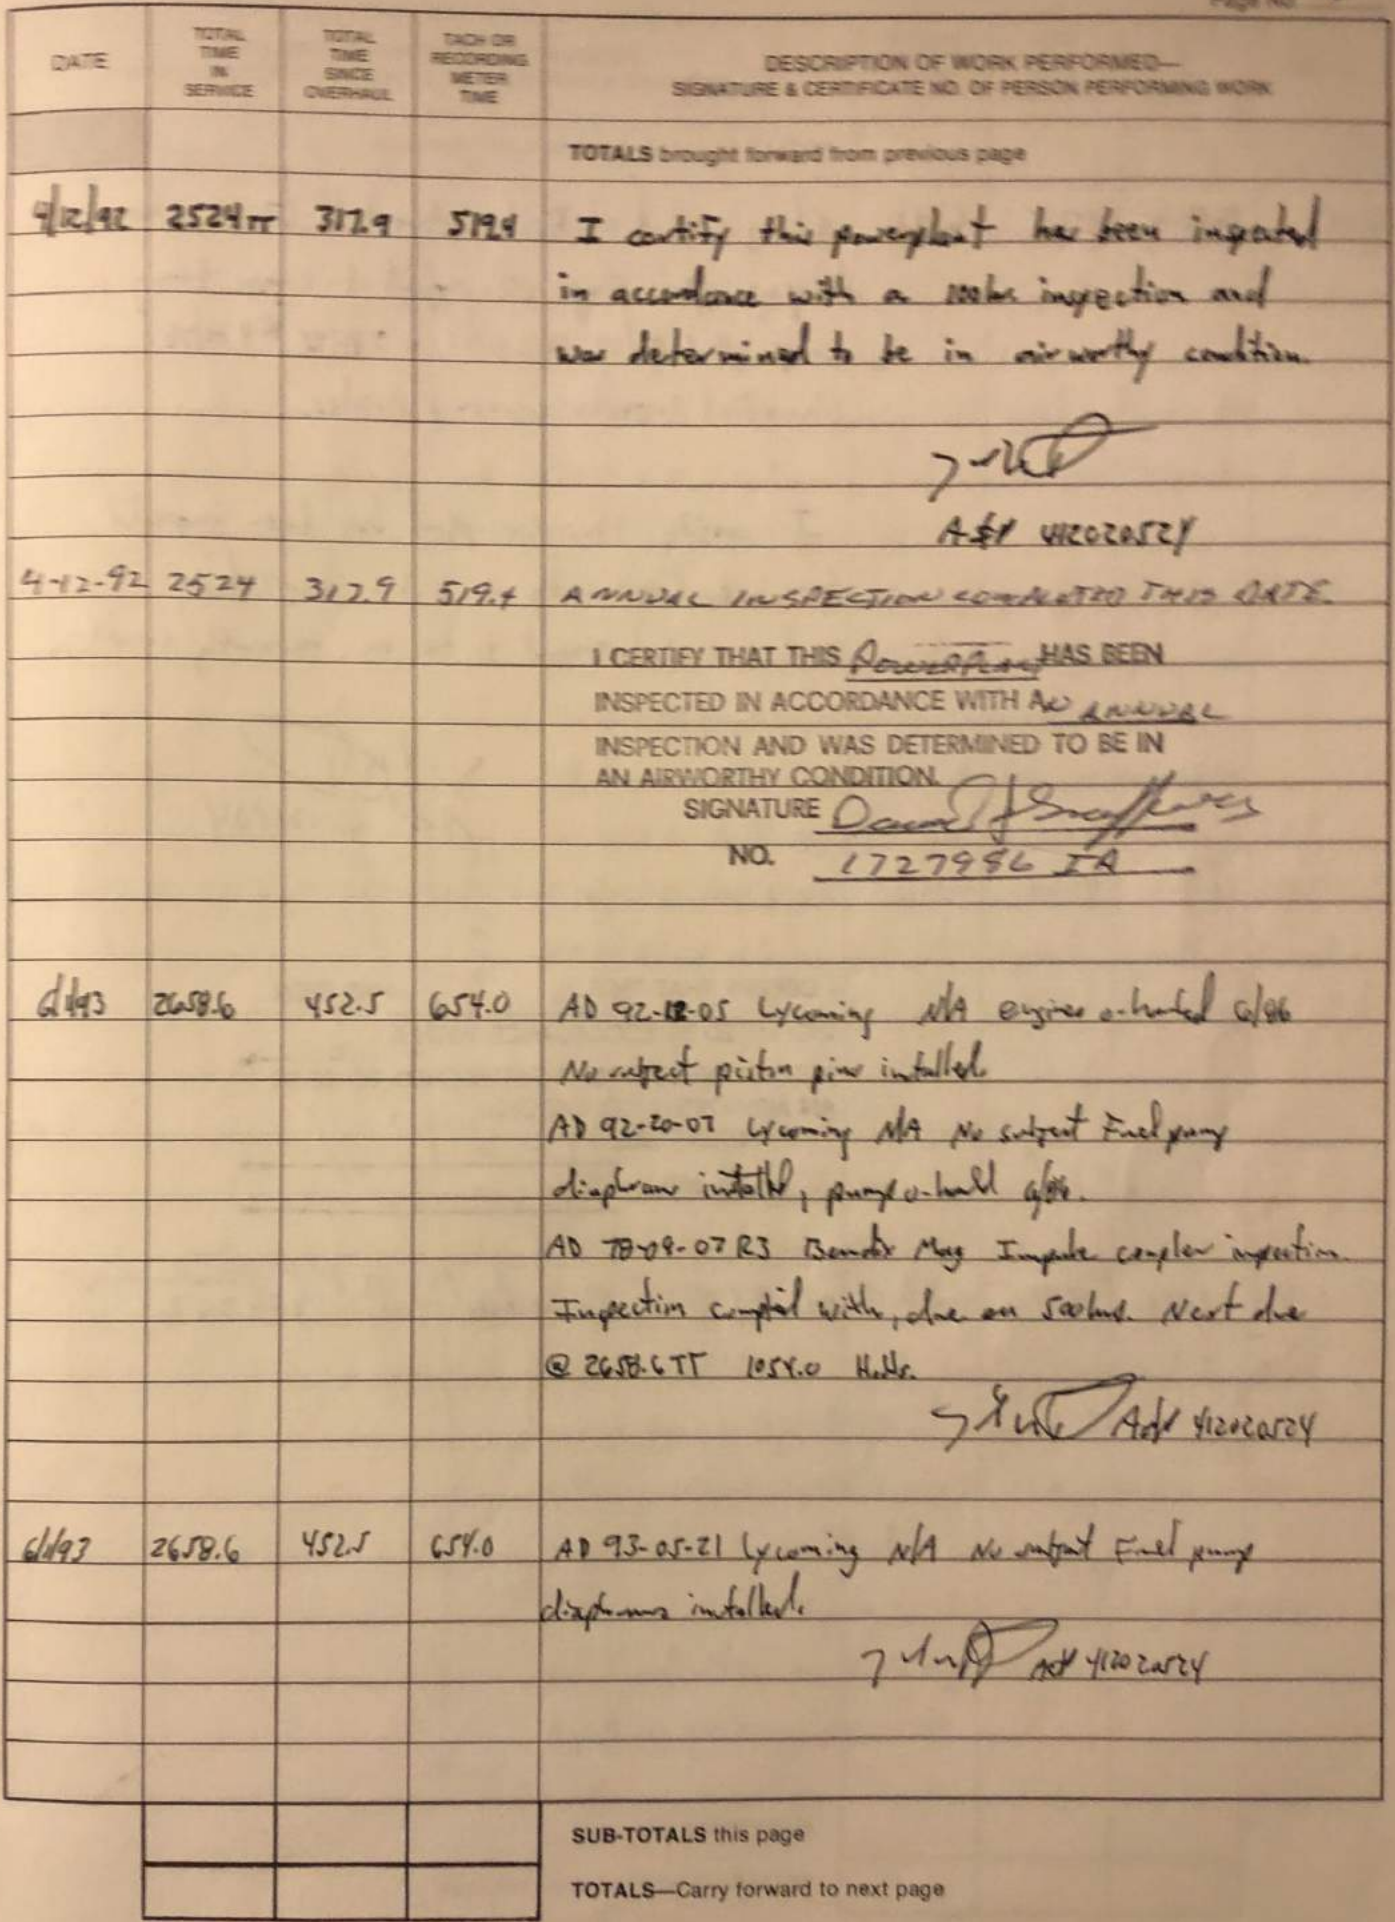 Page No
DATE
TOTAL TIME IN SERVICE
TOTAL TIME SINCE OVERHAUL
TACH OR RECORDING METER TIME
DESCRIPTION OF WORK PERFORMED—
SIGNATURE & CERTIFICATE NO. OF PERSON PERFORMING WORK
TOTALS brought forward from previous page
4/12/92 2524 TT 317.9 519.4 I certify this powerplant has been inspected
in accordance with a 100 hr inspection and
was determined to be in airworthy condition.
A&P 412020524
4-12-92 2524 317.9 519.4 ANNUAL INSPECTION COMPLETED THIS DATE.
I CERTIFY THAT THIS Powerplant HAS BEEN
INSPECTED IN ACCORDANCE WITH AN ANNUAL
INSPECTION AND WAS DETERMINED TO BE IN
AN AIRWORTHY CONDITION.
SIGNATURE
NO. 1727986 IA
6/1/93 2658.6 452.5 654.0 AD 92-12-05 Lycoming N/A engine o-hauled 6/86
No subject piston pins installed.
AD 92-20-07 Lycoming N/A No subject Fuel pump
diaphram installed, pump o-hauld 6/86.
AD 78-09-07 R3 Bendix Mag Impulse coupler inspection.
Inspection complied with, due on 500 hrs. Next due
@ 2658.6 TT 1054.0 Hobbs.
A&P 412020524
6/1/93 2658.6 452.5 654.0 AD 93-05-21 Lycoming N/A No subject Fuel pump
diaphrams installed.
A&P 412020524
SUB-TOTALS this page
TOTALS—Carry forward to next page